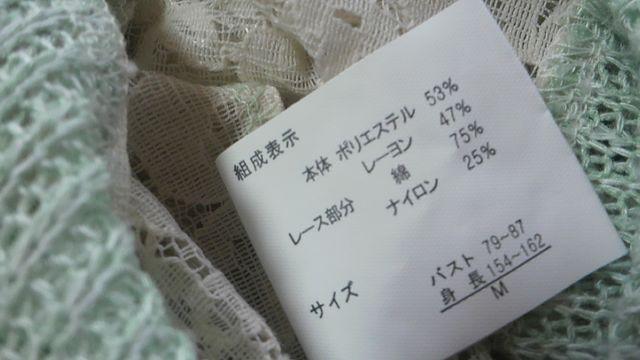 組成表示
本体 ポリエステル 53%
レーヨン 47%
レース部分 綿 75%
ナイロン 25%
サイズ
バスト 79~87
身長 154~162
M